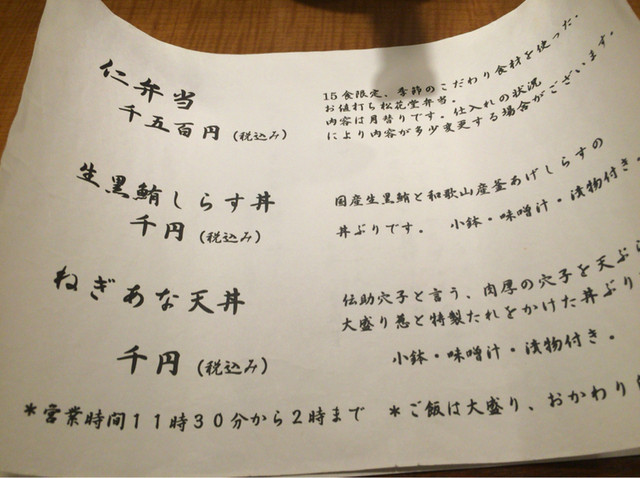 仁弁当
千五百円(税込み)
15食限定、季節のこだわり食材を使った、
お値打ち松花堂弁当。
内容は月替りです。仕入れの状況
により内容が多少変更する場合がございます。
生黒鮪しらす丼
千円(税込み)
国産生黒鮪と和歌山産釜あげしらすの
丼ぶりです。 小鉢・味噌汁・漬物付き。
ねぎあな天丼
千円(税込み)
伝助穴子と言う、肉厚の穴子を天ぷら
大盛り葱と特製たれをかけた丼ぶり
小鉢・味噌汁・漬物付き。
*営業時間11時30分から2時まで *ご飯は大盛り、おかわり